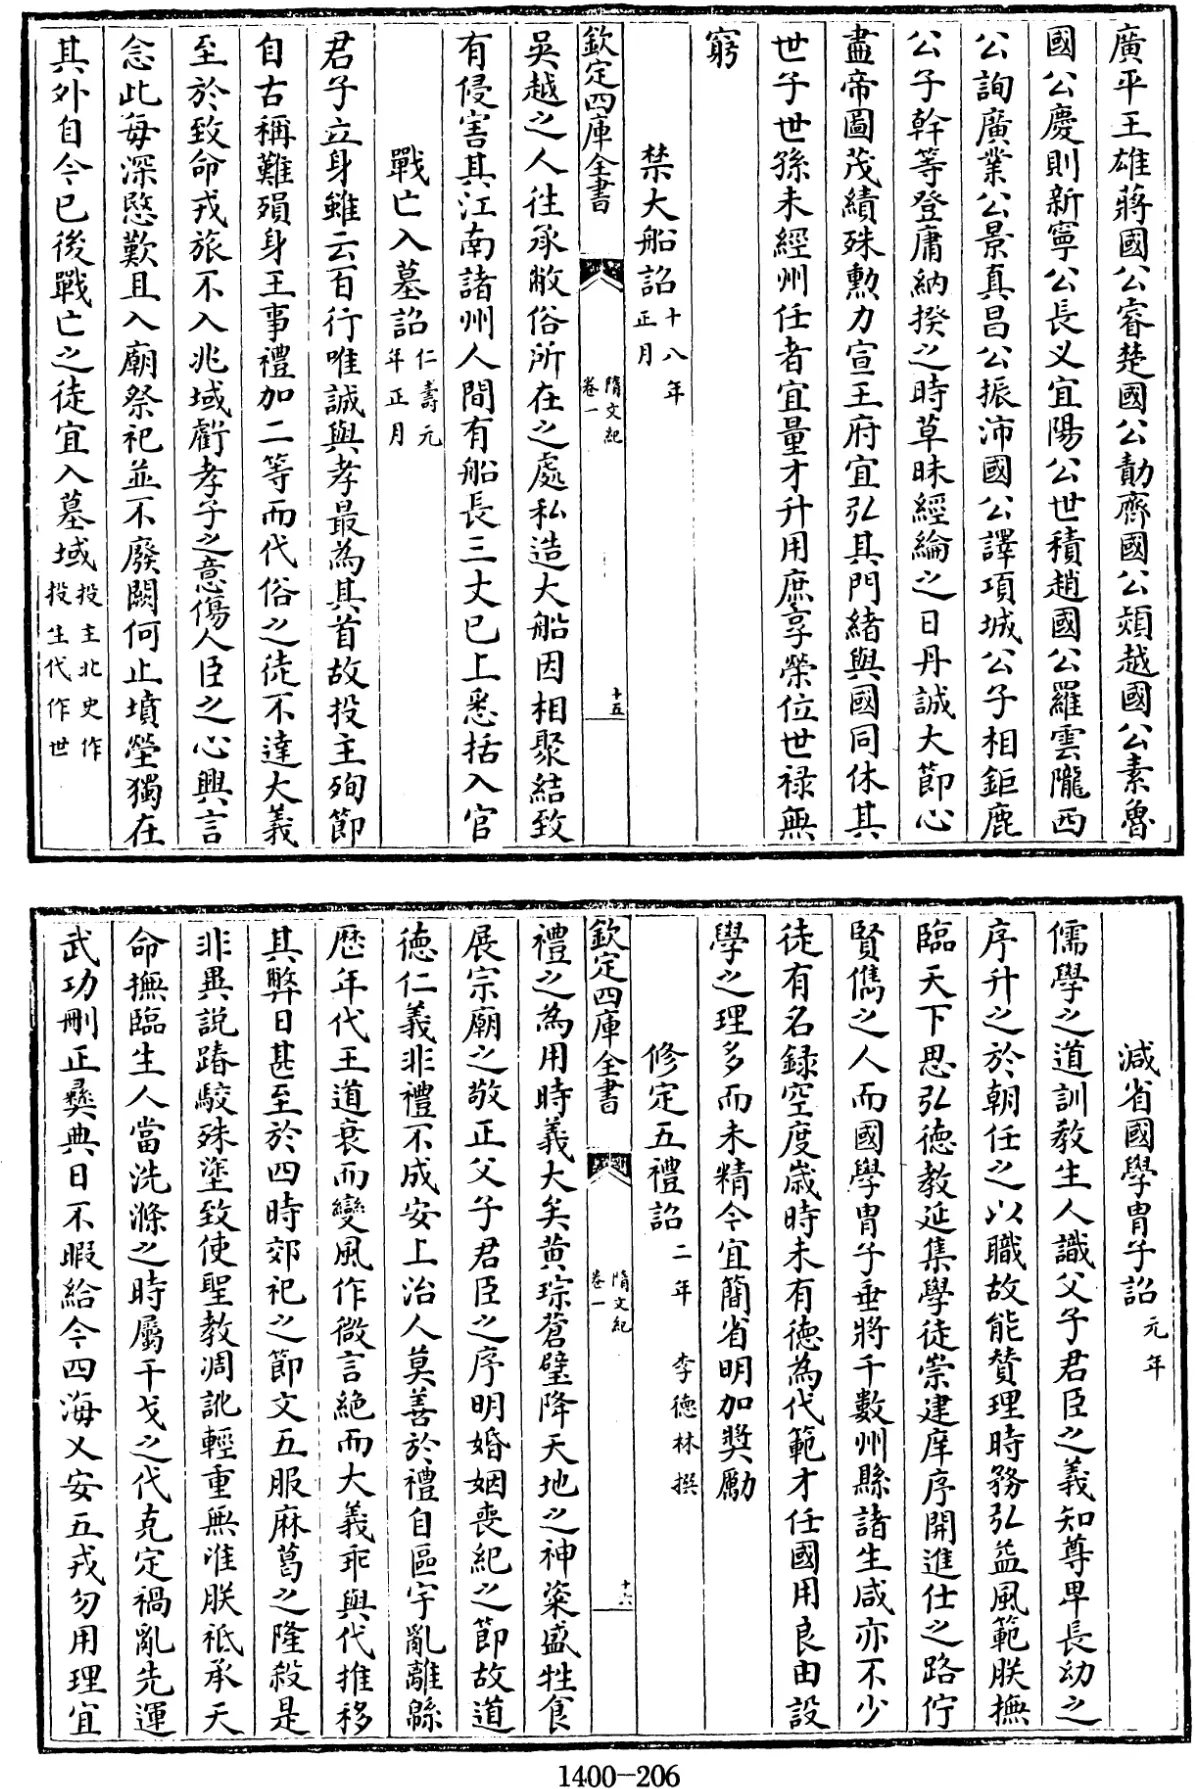 廣平王雄蔣國公睿楚國公勣齊國公熲越國公素魯
國公慶則新寧公長乂宜陽公世積趙國公羅雲隴西
公詢廣業公景真昌公振沛國公譯項城公子相鉅鹿
公子幹等登庸納揆之時草昧經綸之日丹誠大節心
盡帝圖茂績殊勲力宣王府宜弘其門緒與國同休其
世子世孫未經州任者宜量才升用庶享榮位世禄無
窮
禁大船詔十八年正月
欽定四庫全書 隋文紀卷一 十五
吳越之人往承敝俗所在之處私造大船因相聚結致
有侵害其江南諸州人間有船長三丈已上悉括入官
戰亡入墓詔仁壽元年正月
君子立身雖云百行唯誠與孝最為其首故投主殉節
自古稱難殞身王事禮加二等而代俗之徒不達大義
至於致命戎旅不入兆域虧孝子之意傷人臣之心興言
念此每深愍歎且入廟祭祀並不廢闕何止墳塋獨在
其外自今已後戰亡之徒宜入墓域投主北史作投生代作世
減省國學胄子詔元年
儒學之道訓教生人識父子君臣之義知尊卑長幼之
序升之於朝任之以職故能賛理時務弘益風範朕撫
臨天下思弘徳教延集學徒崇建庠序開進仕之路佇
賢儁之人而國學胄子垂將千數州縣諸生咸亦不少
徒有名録空度嵗時未有徳為代範才任國用良由設
學之理多而未精今宜簡省明加奬勵
修定五禮詔二年 李徳林撰
欽定四庫全書 隋文紀卷一 十六
禮之為用時義大矣黄琮蒼璧降天地之神粢盛牲食
展宗廟之敬正父子君臣之序明婚姻喪紀之節故道
徳仁義非禮不成安上治人莫善於禮自區宇亂離緜
歴年代王道衰而變風作微言絶而大義乖與代推移
其弊日甚至於四時郊祀之節文五服麻葛之隆殺是
非異說踳駮殊塗致使聖教凋訛輕重無准朕祗承天
命撫臨生人當洗滌之時屬干戈之代克定禍亂先運
武功刪正彝典日不暇給今四海乂安五戎勿用理宜
1400-206